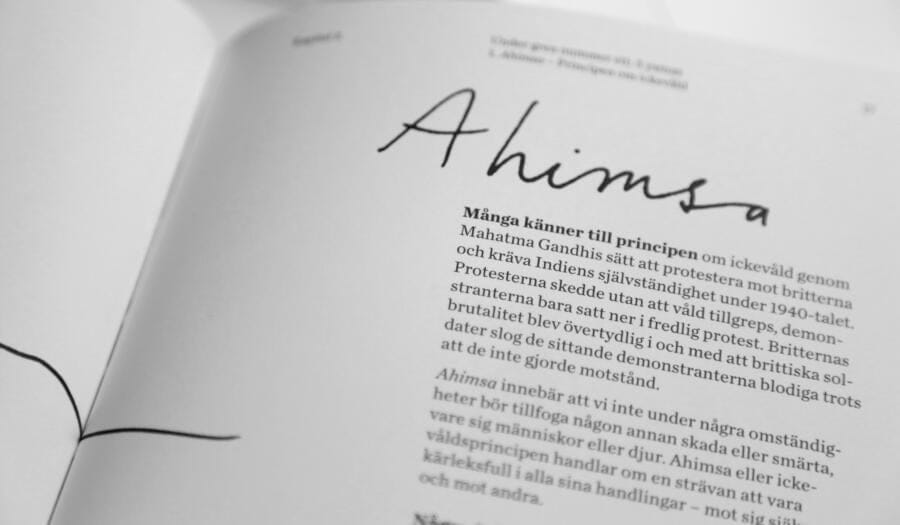 Kapitel 2
1. Ahimsa – Principen om ickevåld
Ahimsa
Många känner till principen om ickevåld genom
Mahatma Gandhis sätt att protestera mot britterna
och kräva Indiens självständighet under 1940-talet.
Protesterna skedde utan att våld tillgreps, demon-
stranterna bara satt ner i fredlig protest. Britternas
brutalitet blev övertydlig i och med att brittiska sol-
dater slog de sittande demonstranterna blodiga trots
att de inte gjorde motstånd.
Ahimsa innebär att vi inte under några omständig-
heter bör tillfoga någon annan skada eller smärta,
vare sig människor eller djur. Ahimsa eller icke-
våldsprincipen handlar om en strävan att vara
kärleksfull i alla sina handlingar – mot sig själv
och mot andra.